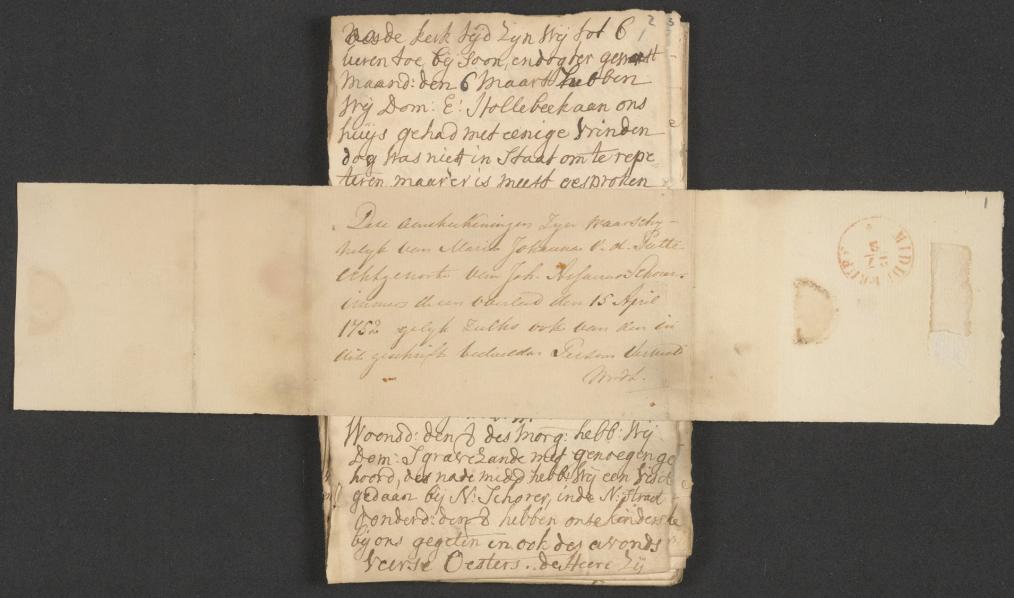 2 3
1
des de kerk tyd zyn wy tot 6
ueren toe, by soon, en dogter geweest
Maand: den 6 Maart hebben
Wy Dom: E: Hollebeek aan ons
huys gehad met eenige Vrinden
dog was niet in Staat om te repe
teren maar er is meest gesproken
Dese aantekeningen Zyn waarschy-
nelyk van Maria Johanna V. d. Putte
echtgenoote van Joh.
immers deeze overleed den 15 April
175 gelyk zulks ook van den in
dit geschrift bedoelden Persoon vermeld
Wordt.
1
MIDDELBURG
Woensd: den 8 des morg: hebb: Wy
Dom: Sgravezande met genoegen ge
hoord, des nade midd hebb: Wy een visit
gedaan by N: Schorer, inde N: straet
donderd: den hebben onse kinderske
by ons gegeten en ook des avonds
veerse Oesters.. de Heere Zy